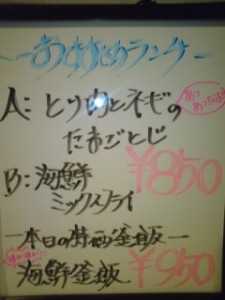 おすすめランチ
A:とり肉とネギの
たまごとじ
¥850
B:海鮮
ミックスフライ
本日の特選釜飯
海鮮釜飯 ¥950